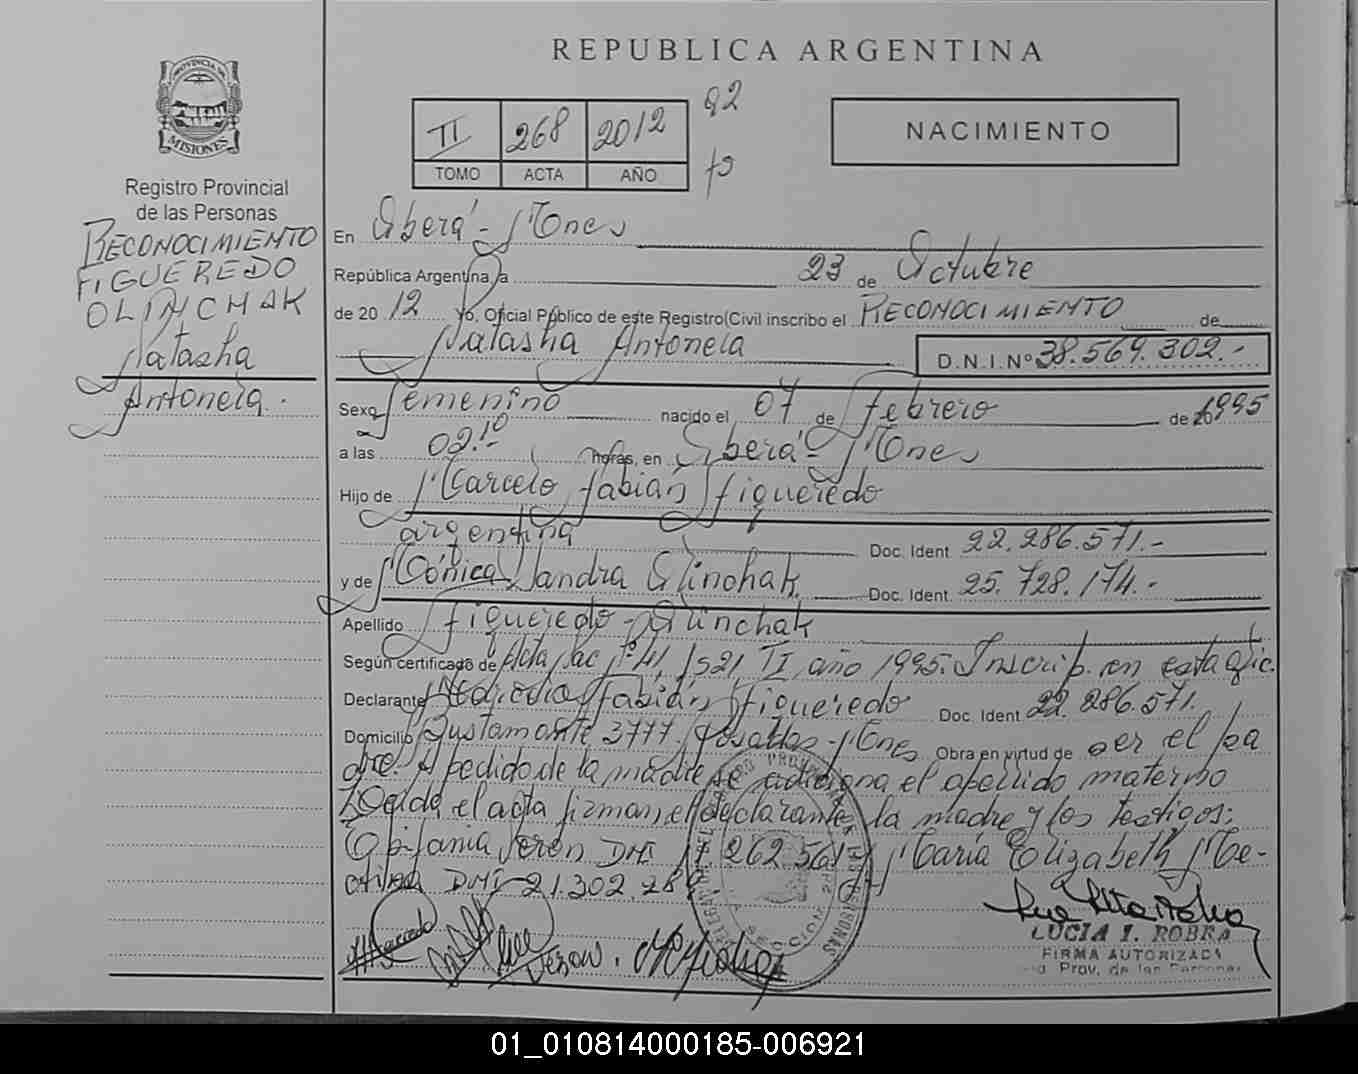 REPUBLICA ARGENTINA
PROVINCIA DE
MISIONES
Registro Provincial
de las Personas
RECONOCIMIENTO
FIGUEREDO
OLINCHAK
Natasha
Antonela.
II 268 2012
TOMO ACTA AÑO
92
NACIMIENTO
En Oberá - Mnes
República Argentina, a 23 de Octubre
de 20 12 Yo, Oficial Público de este Registro Civil inscribo el RECONOCIMIENTO de
Natasha Antonela D.N.I.Nº 38.569.302.-
Sexo femenino nacido el 07 de febrero de 1995
a las 02.10 horas, en Oberá - Mnes
Hijo de Marcelo Fabián Figueredo
argentina Doc. Ident. 22.286.571.-
y de Mónica Sandra Olinchak Doc. Ident. 25.728.174.-
Apellido Figueredo - Olinchak
Según certificado de Acta Nac Nº 41, 521, TI, año 1995. Inscrip. en esta Ofic.
Declarante Marcelo Fabián Figueredo Doc. Ident 22.286.571.
Domicilio Bustamante 3777, Posadas - Mnes Obra en virtud de ser el pa
dre. A pedido de la madre se adiciona el apellido materno
Leída el acta firman, el declarante, la madre y los testigos:
Epifania Veron DNI 17.262.561 y María Elizabeth Me-
DNI 21.302.28
LUCIA I. ROBRA
FIRMA AUTORIZADA
Prov. de las Personas
01_010814000185-006921